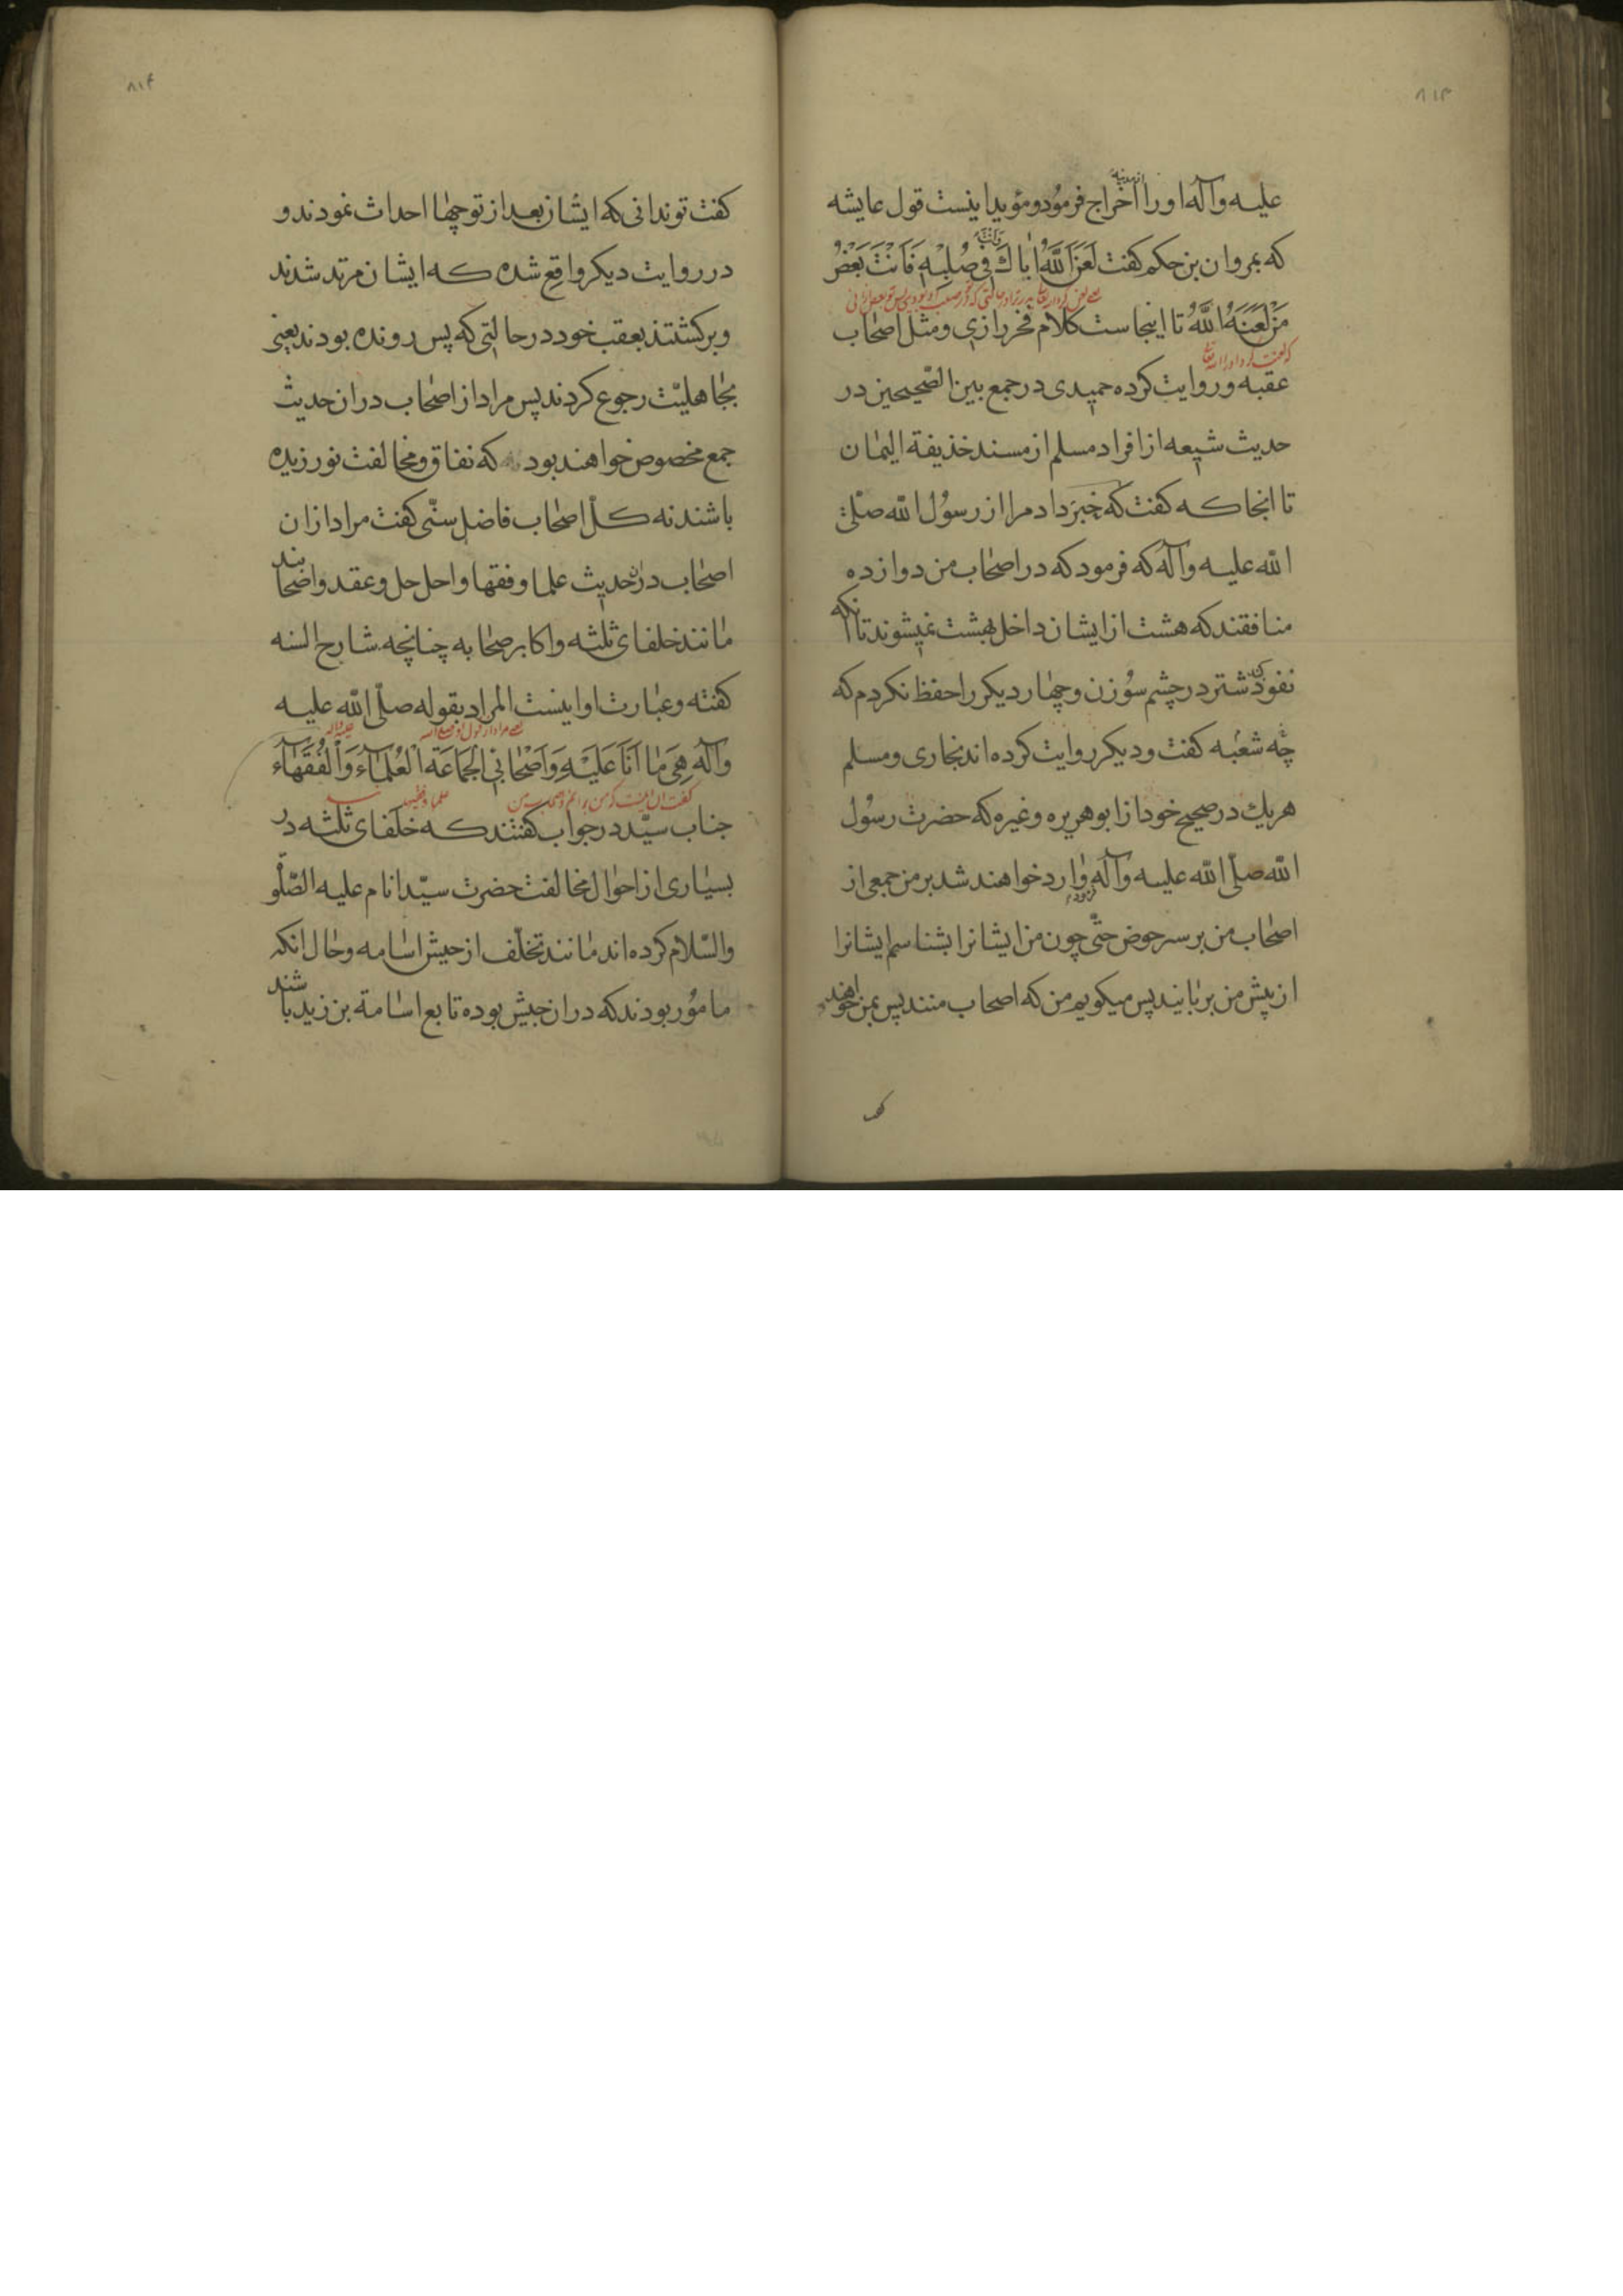 ۸۱۳
علیه وآله اورا اخراج فرمود ومؤید اینست قول عایشه
از مدینه
که بمروان بن حکم کفت لَعَنَ اللَّهُ اَباكَ وَاَنْتَ فِی صُلبِهِ فَاَنْتَ بَعْضُ
مَنْ لَعَنَهُ اللَّهُ تا اینجاست کلام فخر رازی ومثل اصحاب
که لعنت کرد او را الله تعالی
عقبه وروایت کرده حمیدی در جمع بین الصحیحین در
حدیث شیعه از افراد مسلم از مسند خذیفة الیمان
تا انجا که کفت که خبر داد مرا از رسول الله صلی
الله علیه وآله که فرمود که در اصحاب من دوازده
منافقند که هشت از ایشان داخل بهشت نمیشوند تا انکه
نفوذ کند شتر در چشم سوزن وچهار دیکر را حفظ نکردم که
چه شعبه کفت ودیکر روایت کرده اند بخاری ومسلم
هریك در صحیح خود از ابو هریره وغیره که حضرت رسول
الله صلی الله علیه وآله فرموده وارد خواهند شد بر من جمعی از
اصحاب من بر سر حوض حتّی چون من ایشانرا بشناسم ایشانرا
از پیش من بربایند پس میکویم من که اصحاب منند پس بمن خواهند
۸۱۴
کفت تو ندانی که ایشان بعد از تو چها احداث نمودند و
در روایت دیکر واقع شده که ایشان مرتد شدند
وبرکشتند بعقب خود در حالتی که پس رونده بودند یعنی
بجاهلیّت رجوع کردند پس مراد از اصحاب در ان حدیث
جمع مخصوص خواهند بود که نفاق ومخالفت نورزیده
باشند نه کلّ اصحاب فاضل سنّی کفت مراد از ان
اصحاب در ان حدیث علما وفقها واحل حل وعقد واضحابند
مانند خلفای ثلثه واکابر صحابه چنانچه شارح السنه
کفته وعبارت او اینست المراد بقوله صلّی الله علیه
وآله هِیَ مَا اَنَا عَلَیْهِ وَاَصْحابِی الْجَمَاعَةُ الْعُلَمآءُ وَالْفُقَهآءُ
جناب سیّد در جواب کفتند که خلفای ثلثه در
بسیاری از احوال مخالفت حضرت سیّد انام علیه الصّلو
والسّلام کرده اند مانند تخلّف از جیش اسامه وحال انکه
مامور بودند که در ان جیش بوده تابع اسامة بن زید باشند